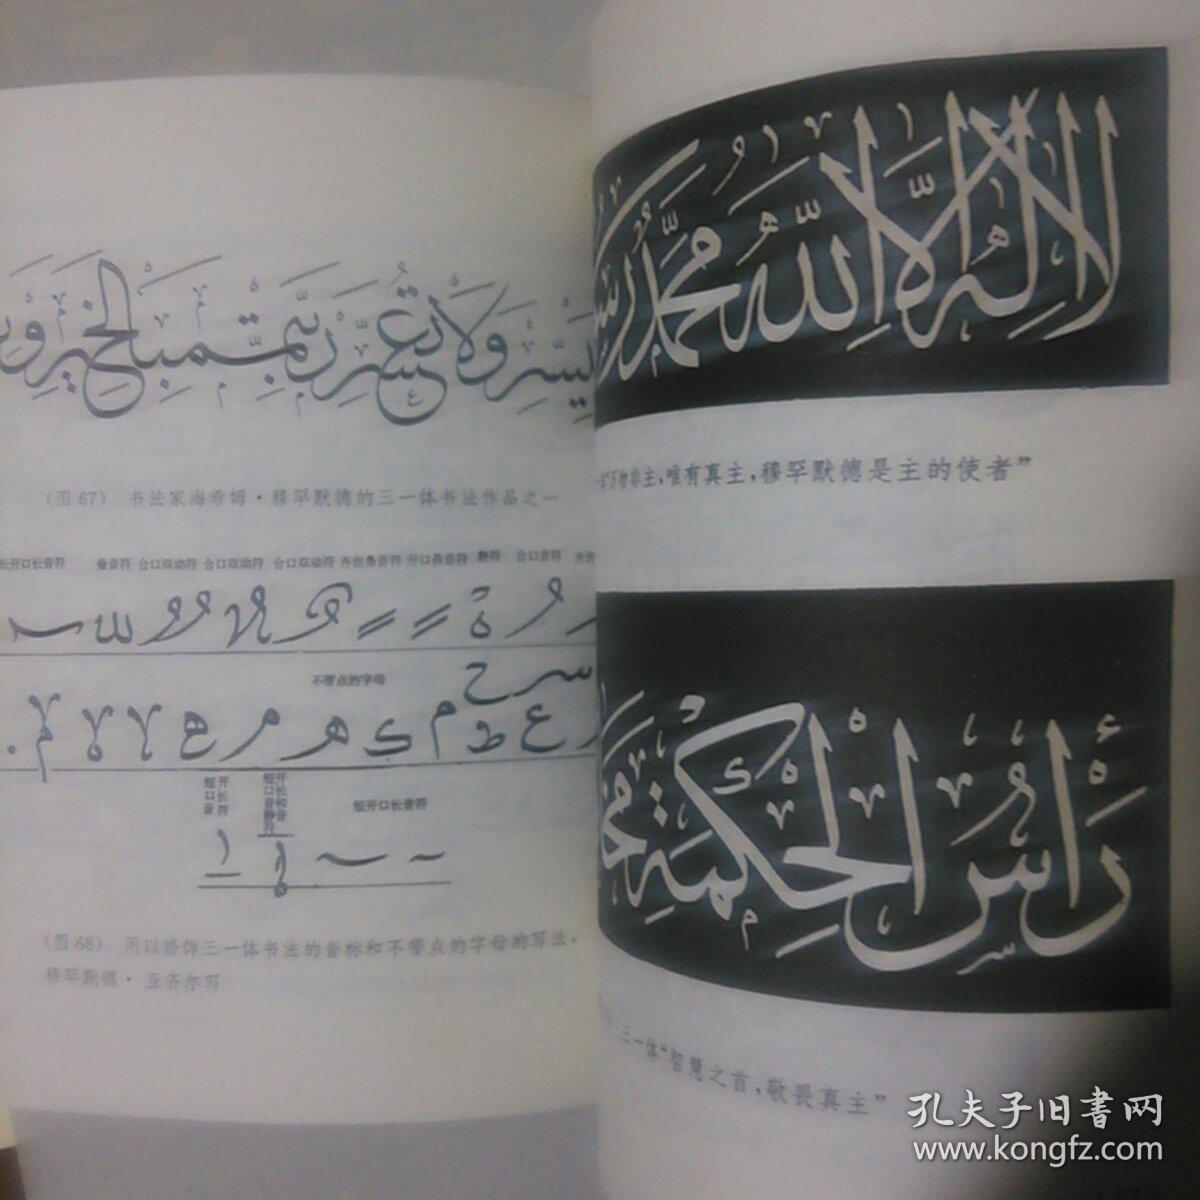 يسر ولا تعسر رب تمم بالخير وبه
(图 67) 书法家海希姆·穆罕默德的三一体书法作品之一
长开口长音符 叠音符 合口双动符 合口双动符 合口双动符 齐齿鼻音符 开口鼻音符 静符 合口音符 齐齿
不带点的字母
短开口长音符 短开口长音和静符 短开口长音符
(图 68) 用以修饰三一体书法的音标和不带点的字母的写法，
穆罕默德·亚齐尔写
لَا إِلٰهَ إِلَّا اللّٰهُ مُحَمَّدٌ رَسُ
“万物非主，唯有真主，穆罕默德是主的使者”
رَأْسُ الْحِكْمَةِ مَخَا
三一体“智慧之首，敬畏真主”
孔夫子旧書网
www.kongfz.com